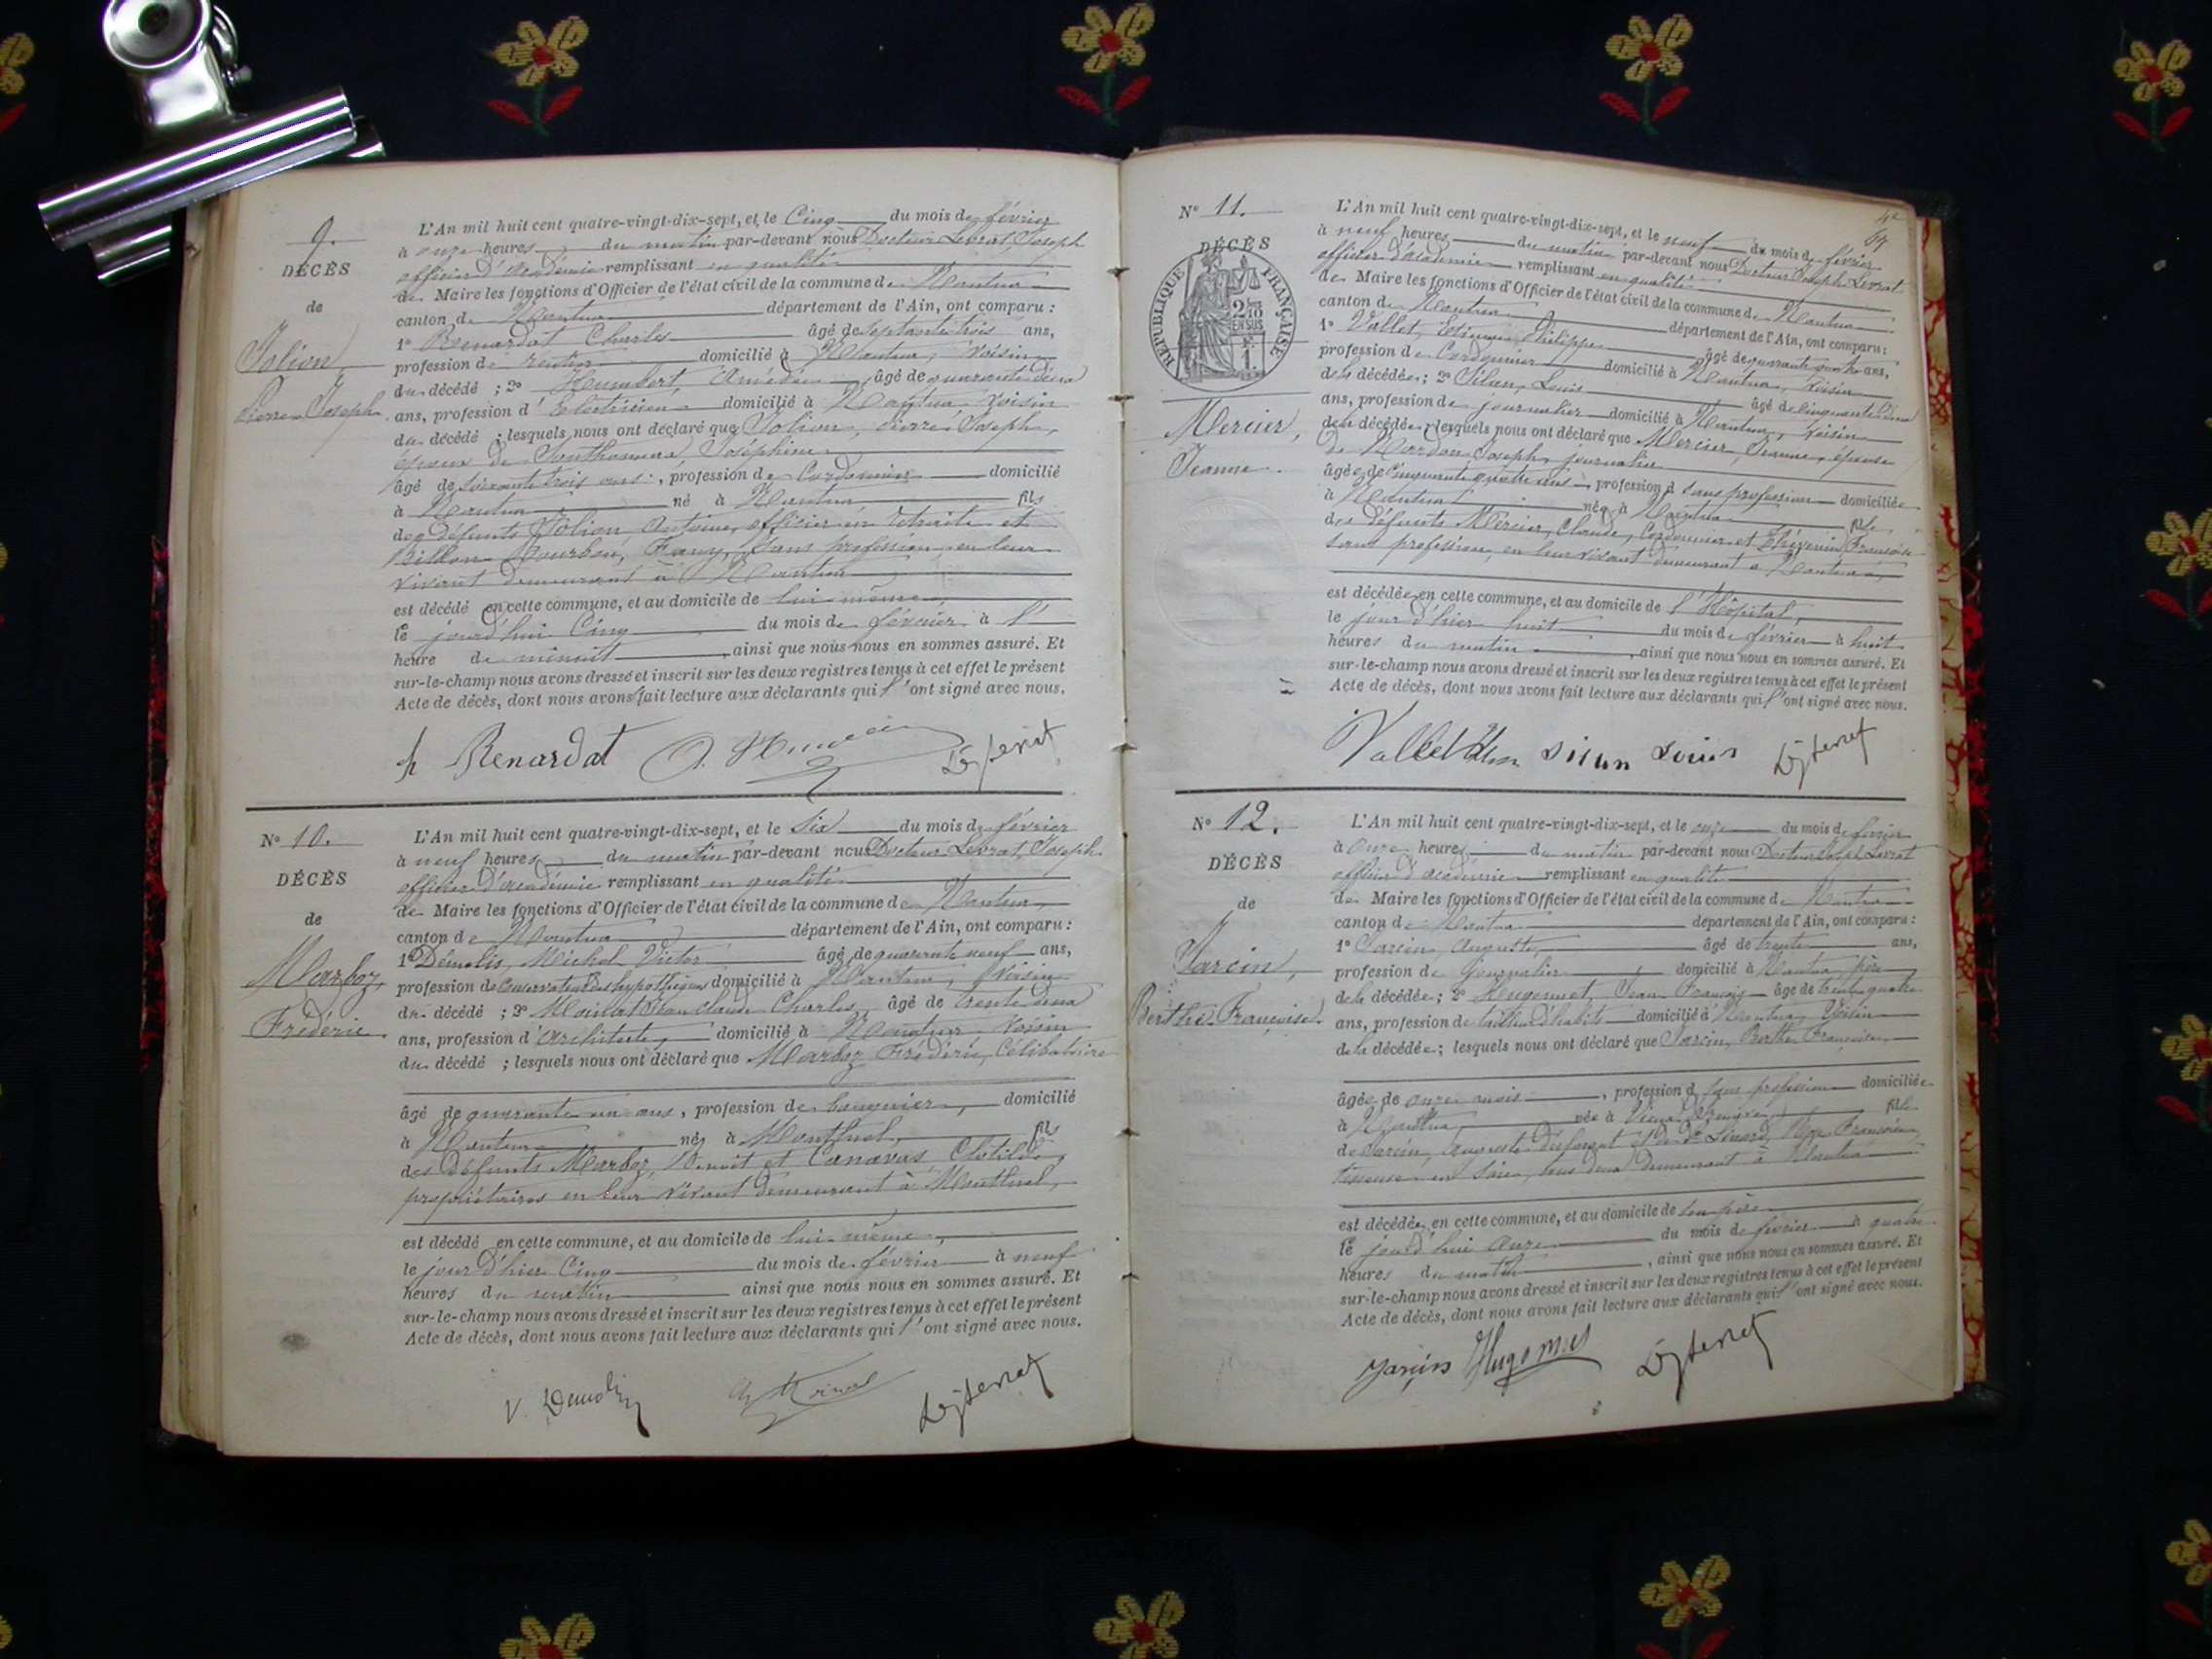 9.
DÉCÈS
de
Jolion
Pierre Joseph
L'An mil huit cent quatre-vingt-dix-sept, et le Cinq du mois de février
à onze heures du matin par-devant nous Docteur Levrat, Joseph
officier d'académie remplissant en qualité
de Maire les fonctions d'Officier de l'état civil de la commune de Nantua
canton de Nantua département de l'Ain, ont comparu :
1° Renardat Charles âgé de septante trois ans,
profession de rentier domicilié à Nantua, voisin
du décédé ; 2° Humbert, Amédée âgé de quarante deux
ans, profession d'Electricien domicilié à Nantua voisin
du décédé ; lesquels nous ont déclaré que Jolion, Pierre Joseph,
époux de Joséphine
âgé de soixante trois ans, profession de Cordonnier domicilié
à Nantua né à Nantua fils
des défunts Jolion Antoine, officier en retraite et
Billon Bourbon, Fany, sans profession en leur
vivant demeurant à Nantua
est décédé en cette commune, et au domicile de lui-même,
le jourd'hui Cinq du mois de février à l'
heure de minuit ainsi que nous nous en sommes assuré. Et
sur-le-champ nous avons dressé et inscrit sur les deux registres tenus à cet effet le présent
Acte de décès, dont nous avons fait lecture aux déclarants qui l'ont signé avec nous.
Renardat
N° 10.
DÉCÈS
de
Marboz
Frédéric
L'An mil huit cent quatre-vingt-dix-sept, et le Six du mois de février
à neuf heures du matin par-devant nous Docteur Levrat, Joseph
officier d'académie remplissant en qualité
de Maire les fonctions d'Officier de l'état civil de la commune de Nantua
canton de Nantua département de l'Ain, ont comparu :
1° Démolis, Michel Victor âgé de quarante neuf ans,
profession de Conservateur des hypothèques domicilié à Nantua, Voisin
du décédé ; 2° Jean Claude Charles, âgé de trente deux
ans, profession d'Architecte, domicilié à Nantua Voisin
du décédé ; lesquels nous ont déclaré que Marboz Frédéric, Célibataire
âgé de quarante un ans, profession de banquier, domicilié
à Nantua né à Montluel, fils
des défunts Marboz, Benoit et Canavas, Clotilde,
propriétaires en leur vivant demeurant à Montluel,
est décédé en cette commune, et au domicile de lui-même,
le jour d'hier Cinq du mois de février à neuf
heures du matin ainsi que nous nous en sommes assuré. Et
sur-le-champ nous avons dressé et inscrit sur les deux registres tenus à cet effet le présent
Acte de décès, dont nous avons fait lecture aux déclarants qui l'ont signé avec nous.
V. Demolis
N° 11.
DÉCÈS
RÉPUBLIQUE FRANÇAISE
2/10 EN SUS
Mercier,
Jeanne
L'An mil huit cent quatre-vingt-dix-sept, et le neuf du mois de février
à neuf heures du matin par-devant nous Docteur Joseph Levrat
officier d'académie remplissant en qualité
de Maire les fonctions d'Officier de l'état civil de la commune de Nantua
canton de Nantua département de l'Ain, ont comparu :
1° Vallet, Etienne Philippe âgé de quarante quatre ans,
profession de Cordonnier domicilié à Nantua, Voisin
de la décédée ; 2° Silan, Louis âgé de cinquante deux
ans, profession de journalier domicilié à Nantua, Voisin
de la décédée lesquels nous ont déclaré que Mercier, Jeanne, épouse
de Joseph, journalier
âgée de cinquante quatre ans profession d sans profession domiciliée
à Nantua née à Nantua fille
des défunts Mercier, Claude, Cordonnier et Thévenin Françoise
sans profession, en leur vivant demeurant à Nantua,
est décédée en cette commune, et au domicile de l'Hôpital,
le jour d'hier huit du mois de février à huit
heures du matin, ainsi que nous nous en sommes assuré. Et
sur-le-champ nous avons dressé et inscrit sur les deux registres tenus à cet effet le présent
Acte de décès, dont nous avons fait lecture aux déclarants qui l'ont signé avec nous.
Vallet silan Louis
N° 12.
DÉCÈS
de
Jarcin,
Berthe Françoise
L'An mil huit cent quatre-vingt-dix-sept, et le onze du mois de février
à Onze heures du matin par-devant nous Docteur Joseph Levrat
officier d'académie remplissant en qualité
de Maire les fonctions d'Officier de l'état civil de la commune de Nantua
canton de Nantua département de l'Ain, ont comparu :
1° Jarcin, Auguste, âgé de trente ans,
profession de Journalier domicilié à Nantua, père
de la décédée ; 2° Hugonnet, Jean François âgé de trente quatre
ans, profession de tailleur d'habits domicilié à Nantua, Voisin
de la décédée ; lesquels nous ont déclaré que Jarcin, Berthe Françoise,
âgée de onze mois, profession d sans profession domiciliée
à Nantua, née à fille
de Jarcin, Auguste et de Françoise,
tisseuse en soie, tous deux demeurant à Nantua
est décédée en cette commune, et au domicile de son père
le jourd'hui Onze du mois de février à quatre
heures du matin, ainsi que nous nous en sommes assuré. Et
sur-le-champ nous avons dressé et inscrit sur les deux registres tenus à cet effet le présent
Acte de décès, dont nous avons fait lecture aux déclarants qui l'ont signé avec nous.